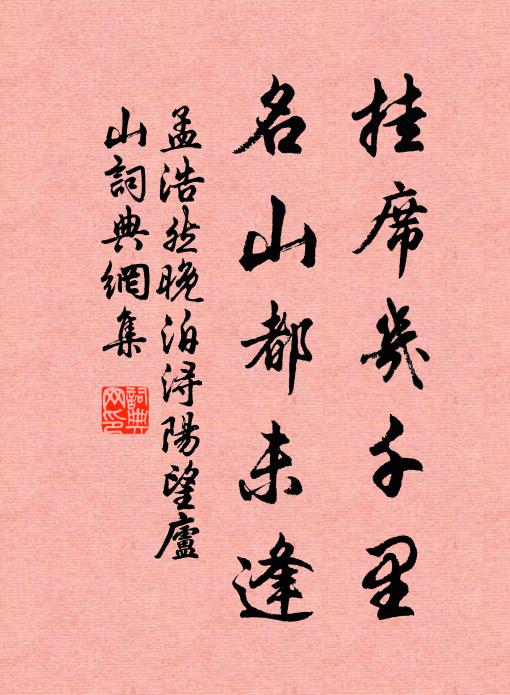 挂席幾千里
名山都未逢
孟浩然晚泊浔陽望廬
山詞典網集
詞典
网印